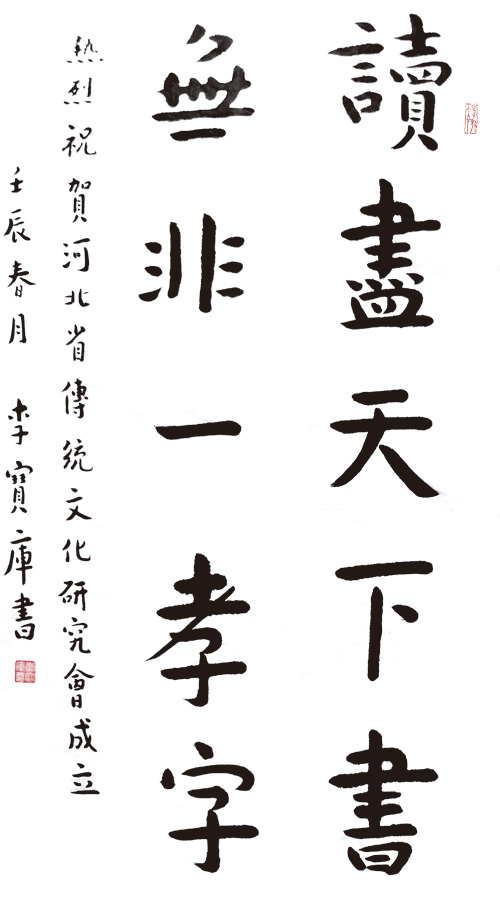 讀盡天下書
無非一孝字
熱烈祝賀河北省傳統文化研究會成立
壬辰春月 李寶庫書